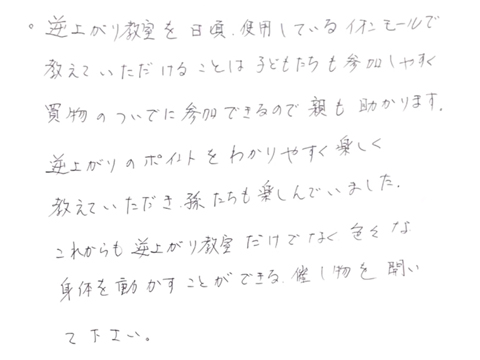 。逆上がり教室を日頃、使用しているイオンモールで
教えていただけることは子どもたちも参加しやすく
買物のついでに参加できるので親も助かります。
逆上がりのポイントをわかりやすく楽しく
教えていただき、孫たちも楽しんでいました。
これからも逆上がり教室だけでなく色々な
身体を動かすことができる、催し物を開い
て下さい。